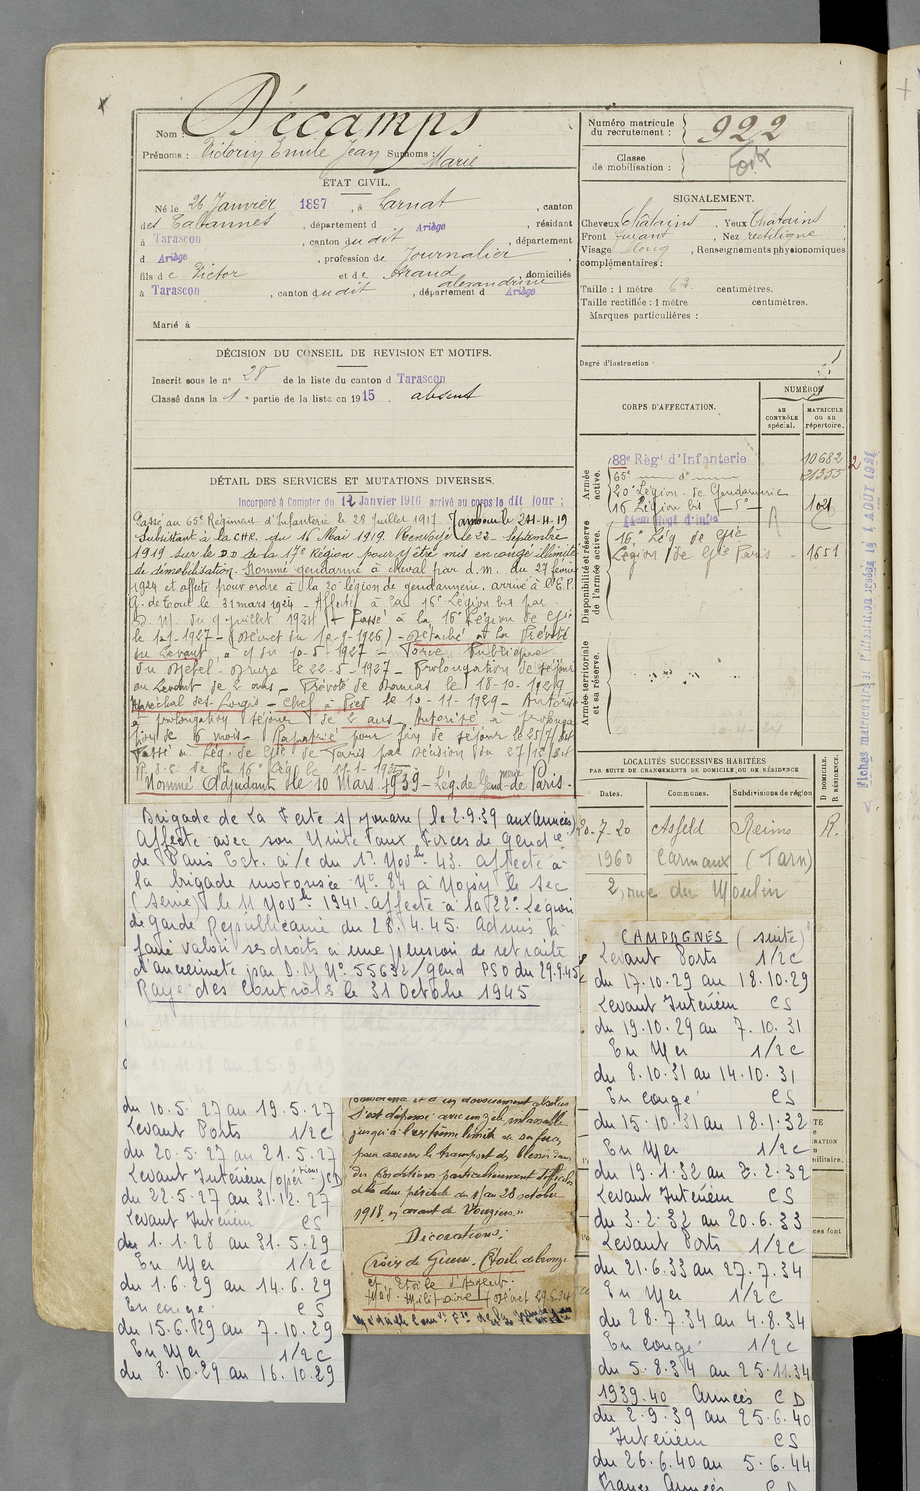 Nom : Décamps
Prénoms : Victorin Emile Jean Surnoms : Marie
ÉTAT CIVIL.
Né le 26 Janvier 1897, à Larnat, canton
des Cabannes, département d Ariège, résidant
à Tarascon, canton du dit, département
d Ariège, profession de Journalier,
fils de Victor et de Araud alexandrine, domiciliés
à Tarascon, canton du dit, département d Ariège
Marié à
DÉCISION DU CONSEIL DE REVISION ET MOTIFS.
Inscrit sous le n° 28 de la liste du canton d Tarascon
Classé dans la 1e partie de la liste en 1915. absent
DÉTAIL DES SERVICES ET MUTATIONS DIVERSES.
Incorporé à Compter du 12 Janvier 1916 arrivé au corps le dit jour ;
Passé au 65e Régiment d'Infanterie le 28 Juillet 1917.
Subsistant à la CHR. du 16 Mai 1919. Renvoyé le 22 Septembre
1919 sur le D.D. de la 17e Région pour y être mis en congé illimité
de démobilisation. Nommé gendarme à cheval par d.m. du 27 février
1924 et affecté pour ordre à la 20e légion de gendarmerie. arrivé à l'E.P.
G. de Toul le 31 mars 1924 - Affecté à la 16e Légion bis par
D.M. du 9 juillet 1924 - Passé à la 16e Légion de Gie
le 1-1-1927 - - Détaché à la Prévôté
du Levant, à c/ du 10-5-1927 - Force Publique
du Djebel-Druze le 22-5-1927 - Prolongation de séjour
au Levant de 2 ans - Prévôté de Damas le 18-10-1929 -
Maréchal des-Logis - chef à Pied le 10-11-1929 - Autorisé
à prolongation séjour de 2 ans - Autorisé à prolonga
tion de 6 mois - Rapatrié pour fin de séjour le 25/7/34
Passé à Lég. de Gie de Paris par décision du 27/12/34
Nommé Adjudant le 10 Mars 1939 - Lég. de Gendmerie de Paris.
Brigade de La Ferté s/ Jouarre (le 2.9.39 aux Armées)
Affecté avec son Unité aux Forces de Gendie
de Paris Ext. a/c du 1er Novbre 43. affecté à
la brigade motorisée N° 84 à Noisy le Sec
(Seine) le 11 Novbre 1941. affecté à la 22e Légion
de garde Républicaine du 28.4.45. admis à
faire valoir ses droits à une pension de retraite
d'ancienneté par D.M N° 55632/gend PSO du 29.9.45
Rayé des Contrôles le 31 Octobre 1945
du 10.5.27 au 19.5.27
Levant Ports 1/2C
du 20.5.27 au 21.5.27
Levant Intérieur (opértions) CD
du 22.5.27 au 31.12.27
Levant Intérieur CS
du 1.1.28 au 31.5.29
En Mer 1/2C
du 1.6.29 au 14.6.29
En congé CS
du 15.6.29 au 7.10.29
En Mer 1/2C
du 8.10.29 au 16.10.29
et d'un dévouement absolus
S'est dépensé avec un zèle inlassable
jusqu'à l'extrême limite de ses forces
pour assurer le transport des blessés dans
des conditions particulièrement difficiles
au cours de la dure période du 1 au 28 octobre
1918, en avant de Vouziers."
Décorations:
Croix de Guerre. Etoile de bronze
et Etoile d'Argent.
Méd. Militaire
Numéro matricule du recrutement : 922
Classe de mobilisation :
SIGNALEMENT.
Cheveux Chatains, Yeux Chatains
Front fuyant, Nez rectiligne,
Visage long, Renseignements physionomiques
complémentaires :
Taille : 1 mètre 62 centimètres.
Taille rectifiée : 1 mètre centimètres.
Marques particulières :
Degré d'instruction
CORPS D'AFFECTATION.
NUMÉROS
AU CONTRÔLE spécial.
MATRICULE OU AU répertoire.
Armée active.
88e Régt d'Infanterie 10682
65e d° 21355
20e Légion de Gendarmerie
16e Légion bis d°
Disponibilité et réserve de l'armée active.
16e Lég de Gie
Légion de Gie Paris 1651
Armée territoriale et sa réserve.
LOCALITÉS SUCCESSIVES HABITÉES
PAR SUITE DE CHANGEMENTS DE DOMICILE OU DE RÉSIDENCE
Dates. Communes. Subdivisions de région D DOMICILE. R RÉSIDENCE.
20-7-20 Asfeld Reims R.
1960 Carmaux (Tarn)
2, rue du Moulin
CAMPAGNES (suite)
Levant Ports 1/2C
du 17.10.29 au 18.10.29
Levant Intérieur CS
du 19.10.29 au 7.10.31
En Mer 1/2C
du 8.10.31 au 14.10.31
En congé CS
du 15.10.31 au 18.1.32
En Mer 1/2C
du 19.1.32 au 2.2.32
Levant Intérieur CS
du 3.2.32 au 20.6.33
Levant Ports 1/2C
du 21.6.33 au 27.7.34
En Mer 1/2C
du 28.7.34 au 4.8.34
En congé 1/2C
du 5.8.34 au 25.11.34
1939.40 Armées CD
du 2.9.39 au 25.6.40
Intérieur CS
du 26.6.40 au 5.6.44
France Armées CD